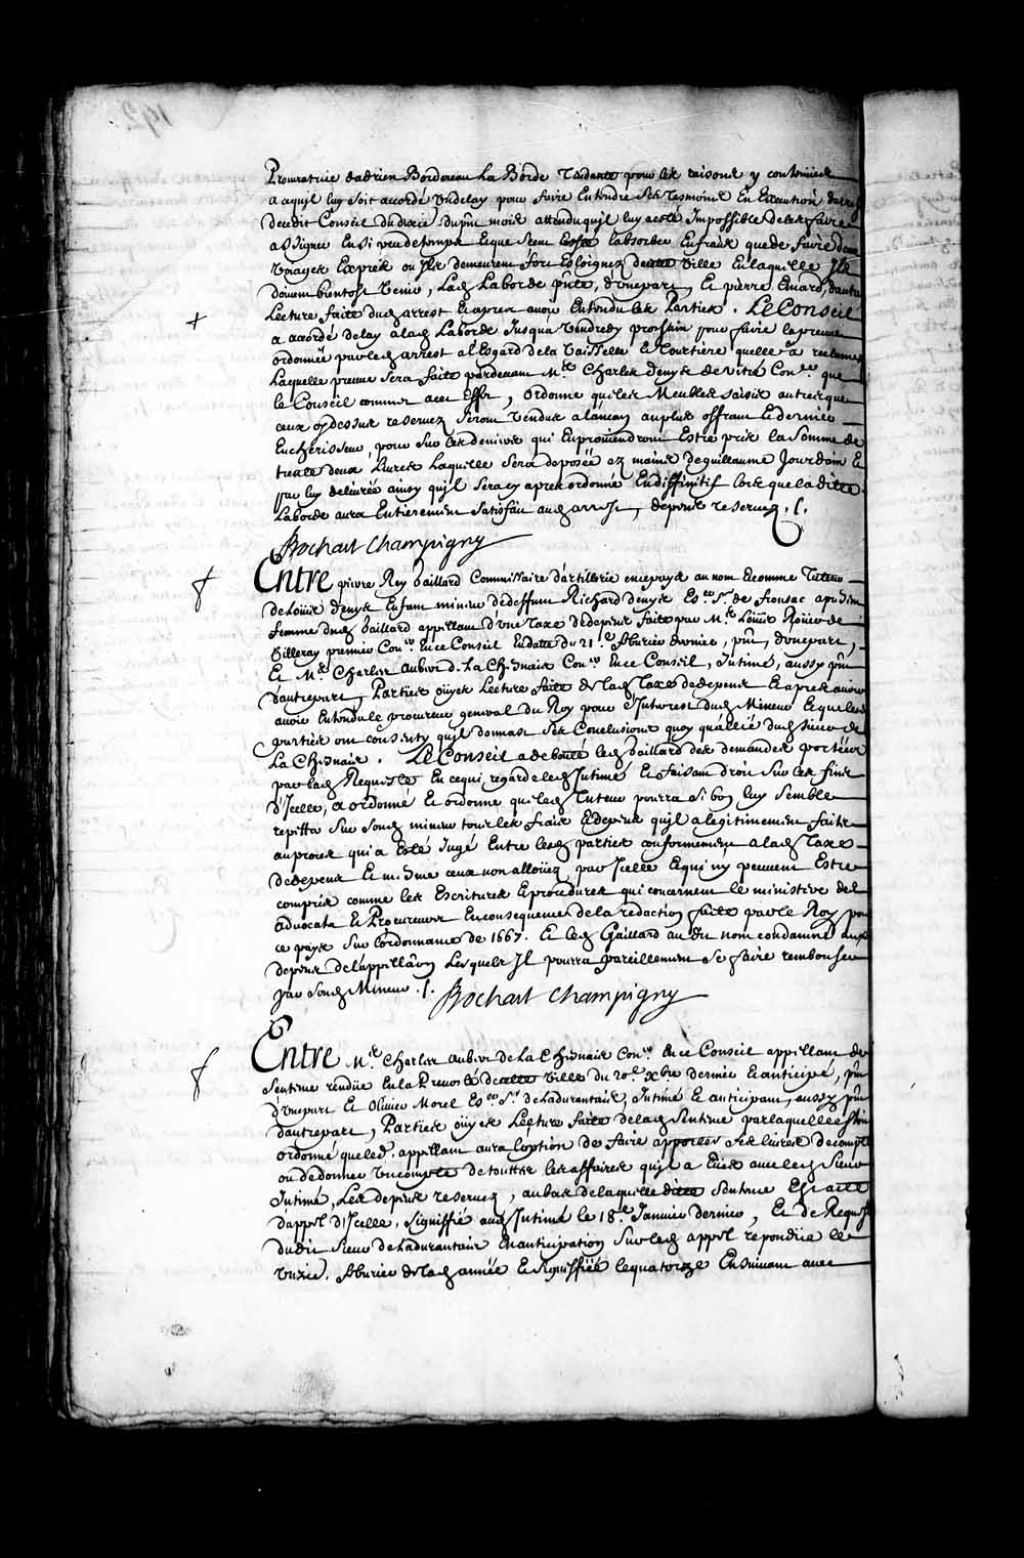 Procuratrice dadrien Bordereau La Borde Tendante pour les raisons y contenües
a aquil luy soit accordé un delay pour faire Entendre ses Tesmoins En Execution
deredit Conseil du pñt mois attendu quil luy a esté Impossible de les faire
assigner En si peu de temps
Voyages Exprés ou Ils demeurent fort Esloignez de cette Ville En laquelle Ils
doivent bientost Venir, Lad Laborde pñte, d'une part, Et pierre Enard,
Lecture faite dud arrest Et apres avoir Entendu les Parties. Le Conseil
a accordé delay a lad Laborde Jusqu'a Vendredy prochain pour faire la preuve
ordonnée par led arrest a l'Esgard de la Vaisselle Et Tourtiere quelle a reclamée
Laquelle preuve sera faite pardevant Mre Charles denys de Vitré Coner que
le Conseil commet a cet Effet, ordonne que les Meubles saisis autres que
ceux cy dessus reservez seront Vendus a lencan au plus offrant Et dernier
Encherisseur, pour sur les deniers qui En proviendront Estre pris la somme de
trente deux Livres Laquelle sera deposée ez mains de guillaume Jourdain Et
par luy delivrée ainsy qu'il sera cy apres ordonné En diffinitif lors que la ditte
Laborde aura Entierement satisfait aud arrest, depens reservez ./.
Bochart Champigny
Entre pierre Rey Gaillard Commissaire d'artillerie en ce pays au nom Et comme Tuteur
de Louis denys Enfant mineur de deffunt Richard denys Escr Sr de fronsac a pñt
femme dud Gaillard appellant d'une Taxe de depens faite par Mre Loüis Roüer de
Villeray premier Coner En ce Conseil En datte du 21e fevrier dernier, pñt, d'une part,
Et Mre Charles Aubert d. La Chesnais Coner En ce Conseil, Intimé, aussy pñt
d'autre part, Parties oüyes Lecture faite de lad Taxe de depens Et apres avoir
avoir Entendu le procureur general du Roy pour l'Interest dud Mineur
parties ont consenty quil donnast ses Conclusions quoy qu'allié dud sieur de
La Chesnais. Le Conseil a debouté led Gaillard des demandes portées
par lad Requeste En ce qui regarde led Intimé Et faisant droit sur les fins
d'Icelle, a ordonné Et ordonne que led Tuteur pourra si bon luy semble
repetter sur sond mineur tous les frais Et depens qu'il a legitimement faits
au proces qui a Esté Jugé Entre lesd parties conformement a lad Taxe
de depens Et mesme ceux non alloüez par Icelle Et qui n'y peuvent Estre
compris comme les Escritures Et procedures qui concernent le ministere des
advocats Et Procureurs En consequence de la redaction faite par le Roy pour
ce pays sur l'ordonnance de 1667. Et led Gaillard au du nom condamné aux
depens de l'appellaon Lesquels Il pourra pareillement se faire rembourser
par sond Mineur ./. Bochart Champigny
Entre Mre Charles Aubert de La Chesnais Coner En ce Conseil appellant de
Sentence rendüe En la Prevosté de cette Ville du 20e Xbre dernier Et anticipé, pñt
d'une part Et Olivier Morel Escr Sr de Ladurantais, Intimé Et anticipant, aussy pñt
d'autre part, Parties oüyes Lecture faite de lad Sentence par laquelle
ordonné que led. appellant aura l'option de faire apporter ses livres de compte
ou de donner Un compte de touttes les affaires qu'il a Eües avec led Sieur
Intimé, Les depens reservez, au bas de laquelle ditte Sentence Est acte
d'appel d'Icelle, signiffié aud Intimé le 18e Janvier dernier, Et de Requeste
dudit Sieur de Ladurantais En anticipation sur led appel repondüe le
Unze. fevrier de lad année Et signiffiée le quatorze Ensuivant avec